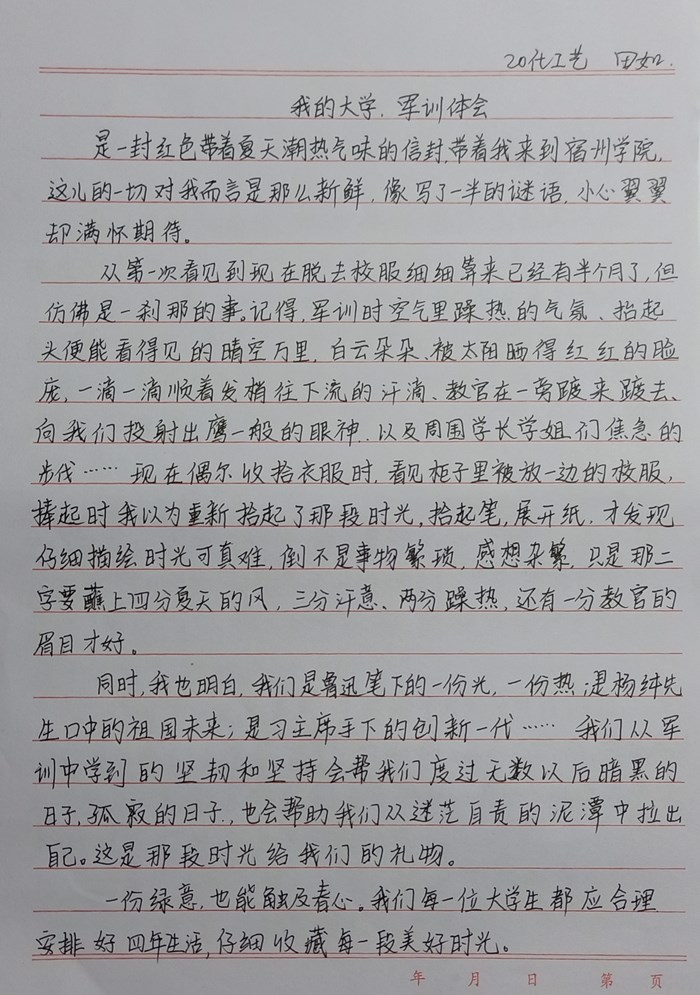 20化工艺 田如.
我的大学.军训体会
是一封红色带着夏天潮热气味的信封,带着我来到宿州学院,
这儿的一切对我而言是那么新鲜,像写了一半的谜语,小心翼翼
却满怀期待。
从第一次看见到现在脱去校服细细算来已经有半个月了,但
仿佛是一刹那的事。记得,军训时空气里躁热的气氛、抬起
头便能看得见的晴空万里,白云朵朵、被太阳晒得红红的脸
庞,一滴一滴顺着发梢往下流的汗滴、教官在一旁踱来踱去、
向我们投射出鹰一般的眼神.以及周围学长学姐们焦急的
步伐……现在偶尔收拾衣服时,看见柜子里被放一边的校服,
捧起时我以为重新拾起了那段时光,抬起笔,展开纸,才发现
仔细描绘时光可真难,倒不是事物繁琐,感想杂繁,只是那二
字要蘸上四分夏天的风,三分汗意、两分躁热,还有一分教官的
眉目才好。
同时,我也明白,我们是鲁迅笔下的一份光,一份热;是杨绛先
生口中的祖国未来;是习主席手下的创新一代……我们从军
训中学到的坚韧和坚持会帮我们度过无数以后暗黑的
日子,孤寂的日子,也会帮助我们从迷茫自责的泥潭中拉出
自己。这是那段时光给我们的礼物。
一份绿意,也能触及春心。我们每一位大学生都应合理
安排好四年生活,仔细收藏每一段美好时光。
年 月 日 第 页